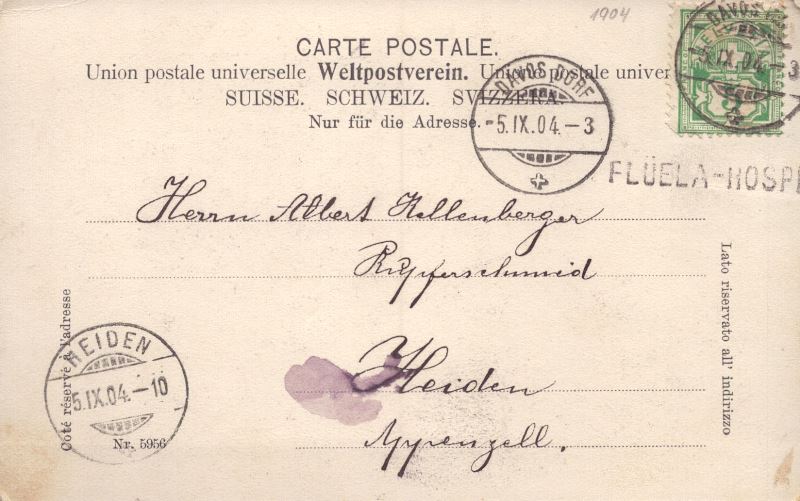 1904
CARTE POSTALE.
Union postale universelle Weltpostverein. Unione postale univer
SUISSE. SCHWEIZ. SVIZZERA.
Nur für die Adresse.
DAVOS DORF
-5.IX.04.-3
DAVOS
HELVETIA
5.IX.04.-3
5
FLÜELA-HOSPI
Herrn Albert Kellenberger
Kupferschmid
Heiden
Appenzell.
HEIDEN
5.IX.04.-10
Côté réservé à l'adresse
Nr. 5956
Lato riservato all' indirizzo